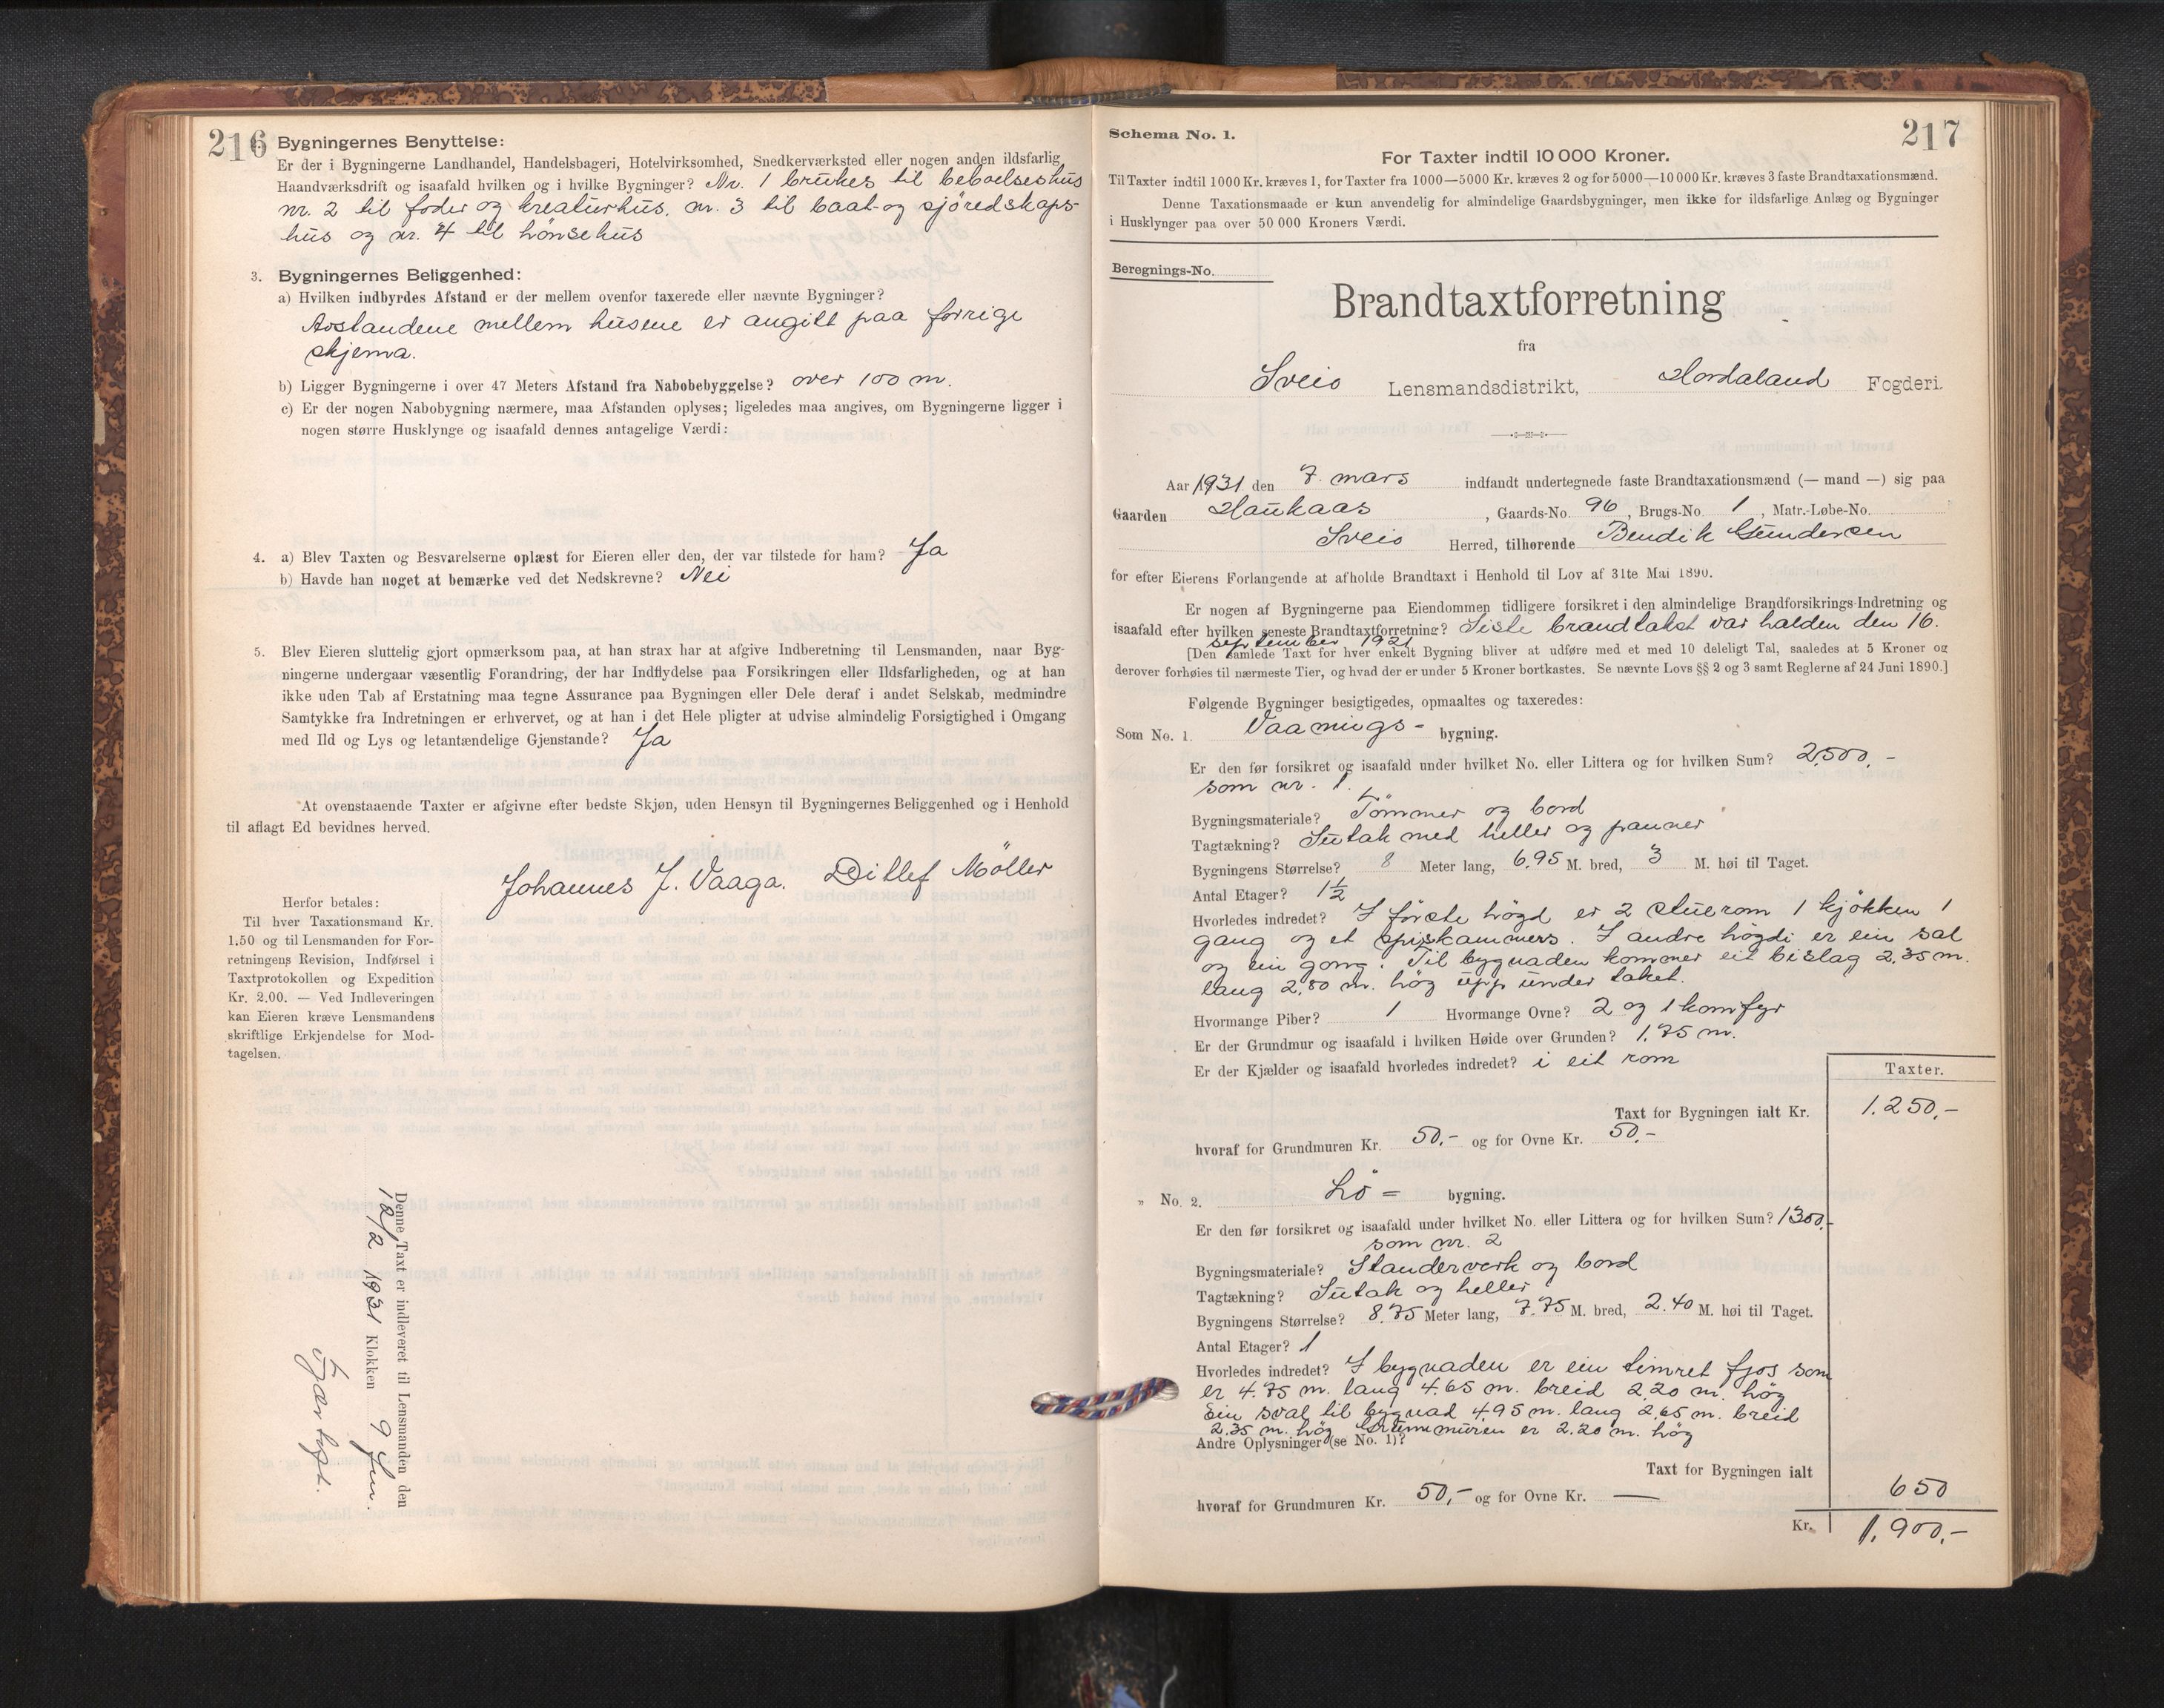 216
Bygningernes Benyttelse:
Er der i Bygningerne Landhandel, Handelsbageri, Hotelvirksomhed, Snedkerværksted eller nogen anden ildsfarlig
Haandværksdrift og isaafald hvilken og i hvilke Bygninger? Nr. 1 brukes til beboelseshus
nr. 2 til foder og kreaturhus. nr. 3 til baat- og sjöredskaps-
hus og nr. 4 til hönsehus
3. Bygningernes Beliggenhed:
a) Hvilken indbyrdes Afstand er der mellem ovenfor taxerede eller nævnte Bygninger?
Avstandene mellem husene er angitt paa forrige
skjema.
b) Ligger Bygningerne i over 47 Meters Afstand fra Nabobebyggelse? over 100 m.
c) Er der nogen Nabobygning nærmere, maa Afstanden oplyses; ligeledes maa angives, om Bygningerne ligger i
nogen større Husklynge og isaafald dennes antagelige Værdi:
4. a) Blev Taxten og Besvarelserne oplæst for Eieren eller den, der var tilstede for ham? Ja
b) Havde han noget at bemærke ved det Nedskrevne? Nei
5. Blev Eieren sluttelig gjort opmærksom paa, at han strax har at afgive Indberetning til Lensmanden, naar Byg-
ningerne undergaar væsentlig Forandring, der har Indflydelse paa Forsikringen eller Ildsfarligheden, og at han
ikke uden Tab af Erstatning maa tegne Assurance paa Bygningen eller Dele deraf i andet Selskab, medmindre
Samtykke fra Indretningen er erhvervet, og at han i det Hele pligter at udvise almindelig Forsigtighed i Omgang
med Ild og Lys og letantændelige Gjenstande? Ja
At ovenstaaende Taxter er afgivne efter bedste Skjøn, uden Hensyn til Bygningernes Beliggenhed og i Henhold
til aflagt Ed bevidnes herved.
Johannes J. Vaaga. Ditlef Möller
Herfor betales:
Til hver Taxationsmand Kr.
1.50 og til Lensmanden for For-
retningens Revision, Indførsel i
Taxtprotokollen og Expedition
Kr. 2.00. — Ved Indleveringen
kan Eieren kræve Lensmandens
skriftlige Erkjendelse for Mod-
tagelsen.
Denne Taxt er indleveret til Lensmanden den
12/2 1931 Klokken 9 fm.
217
Schema No. 1.
For Taxter indtil 10 000 Kroner.
Til Taxter indtil 1000 Kr. kræves 1, for Taxter fra 1000—5000 Kr. kræves 2 og for 5000—10 000 Kr. kræves 3 faste Brandtaxationsmænd.
Denne Taxationsmaade er kun anvendelig for almindelige Gaardsbygninger, men ikke for ildsfarlige Anlæg og Bygninger
i Husklynger paa over 50 000 Kroners Værdi.
Beregnings-No.
Brandtaxtforretning
fra
Sveio Lensmandsdistrikt, Hordaland Fogderi.
Aar 1931 den 7. mars indfandt undertegnede faste Brandtaxationsmænd (— mand —) sig paa
Gaarden Haukaas, Gaards-No. 96, Brugs-No. 1, Matr.-Løbe-No.
Sveio Herred, tilhørende Bendik Gundersen
for efter Eierens Forlangende at afholde Brandtaxt i Henhold til Lov af 31te Mai 1890.
Er nogen af Bygningerne paa Eiendommen tidligere forsikret i den almindelige Brandforsikrings-Indretning og
isaafald efter hvilken seneste Brandtaxtforretning? Siste brandtakst var halden den 16.
september 1921
[Den samlede Taxt for hver enkelt Bygning bliver at udføre med et med 10 deleligt Tal, saaledes at 5 Kroner og
derover forhøies til nærmeste Tier, og hvad der er under 5 Kroner bortkastes. Se nævnte Lovs §§ 2 og 3 samt Reglerne af 24 Juni 1890.]
Følgende Bygninger besigtigedes, opmaaltes og taxeredes:
Som No. 1. Vaanings- bygning.
Er den før forsikret og isaafald under hvilket No. eller Littera og for hvilken Sum? 2500,-
som nr. 1.
Bygningsmateriale? Tömmer og bord
Tagtækning? Sutak med heller og panner
Bygningens Størrelse? 8 Meter lang, 6,95 M. bred, 3 M. høi til Taget.
Antal Etager? 1½
Hvorledes indredet? I förste högd er 2 stuerom 1 kjökken 1
gang og et spiskammers. I andre högdi er ein sal
og ein gong. Til bygnaden kommer eit bislag 2,35 m.
lang 2,80 m. hög upp under taket.
Hvormange Piber? 1 Hvormange Ovne? 2 og 1 komfyr
Er der Grundmur og isaafald i hvilken Høide over Grunden? 1,75 m.
Er der Kjælder og isaafald hvorledes indredet? i eit rom
Taxter.
Taxt for Bygningen ialt Kr. 1.250,-
hvoraf for Grundmuren Kr. 50,- og for Ovne Kr. 50,-
„ No. 2. Lö- bygning.
Er den før forsikret og isaafald under hvilket No. eller Littera og for hvilken Sum? 1300,-
som nr. 2
Bygningsmateriale? Standerverk og bord
Tagtækning? Sutak og heller
Bygningens Størrelse? 8,75 Meter lang, 7,75 M. bred, 2.40 M. høi til Taget.
Antal Etager? 1
Hvorledes indredet? I bygnaden er ein timret fjos som
er 4.75 m. lang 4.65 m. breid 2,20 m. hög
Ein sval til bygnad 4,95 m. lang 2,65 m. breid
2.35 m. hög Grunnmuren er 2.20 m. hög
Andre Oplysninger (se No. 1)?
Taxt for Bygningen ialt 650
hvoraf for Grundmuren Kr. 50,- og for Ovne Kr. —
Kr. 1.900,-